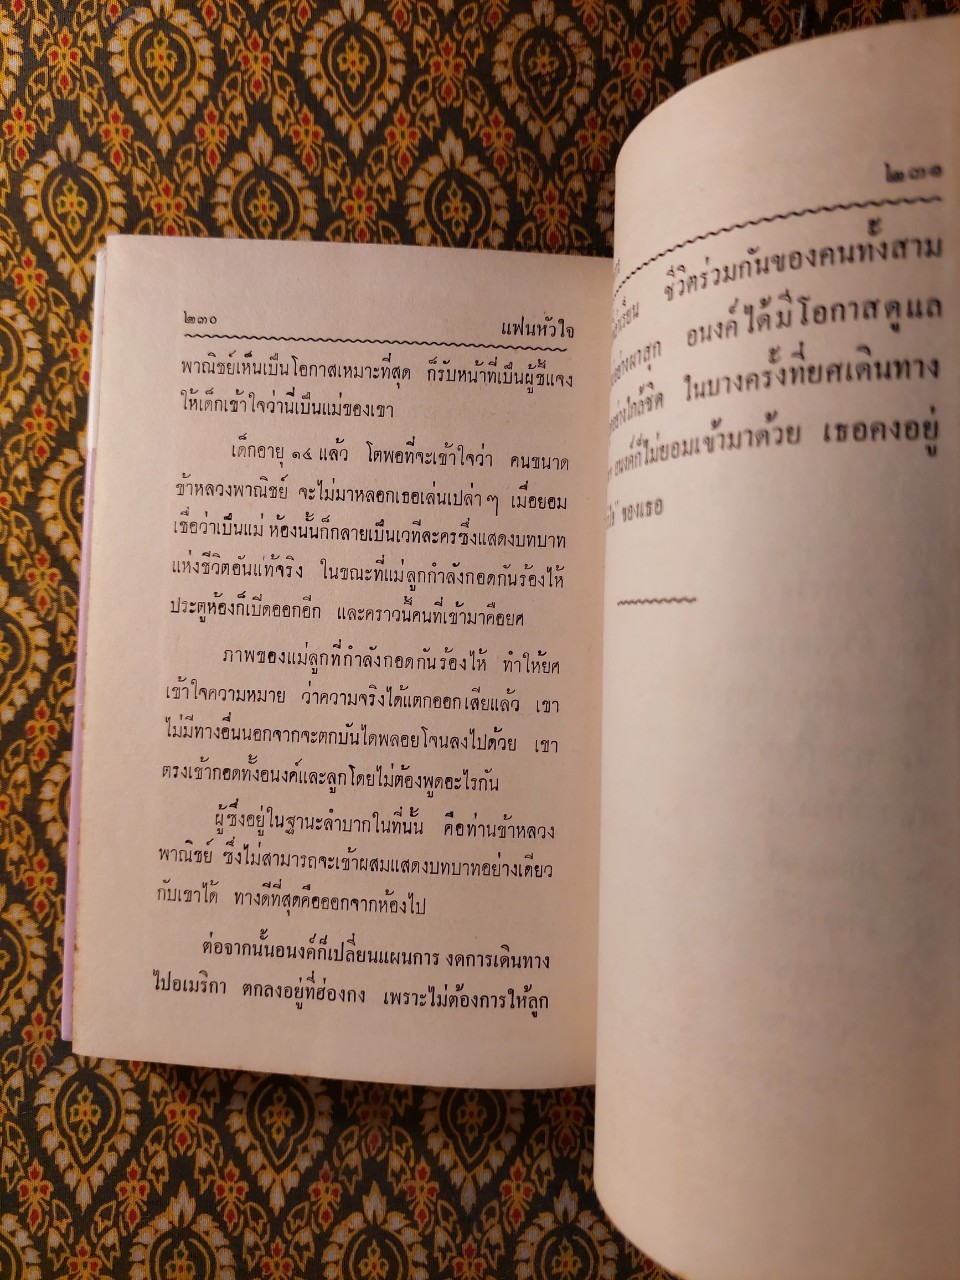 ๒๓๐
แฟนหัวใจ
พาณิชย์เห็นเป็นโอกาสเหมาะที่สุด ก็รับหน้าที่เป็นผู้ชี้แจง
ให้เด็กเข้าใจว่านี่เป็นแม่ของเขา
เด็กอายุ ๑๔ แล้ว โตพอที่จะเข้าใจว่า คนขนาด
ข้าหลวงพาณิชย์ จะไม่มาหลอกเธอเล่นเปล่า ๆ เมื่อยอม
เชื่อว่าเป็นแม่ ห้องนั้นก็กลายเป็นเวทีละครซึ่งแสดงบทบาท
แห่งชีวิตอันแท้จริง ในขณะที่แม่ลูกกำลังกอดกันร้องไห้
ประตูห้องก็เปิดออกอีก และคราวนี้คนที่เข้ามาคือยศ
ภาพของแม่ลูกที่กำลังกอดกันร้องไห้ ทำให้ยศ
เข้าใจความหมาย ว่าความจริงได้แตกออกเสียแล้ว เขา
ไม่มีทางอื่นนอกจากจะตกบันไดพลอยโจนลงไปด้วย เขา
ตรงเข้ากอดทั้งอนงค์และลูกโดยไม่ต้องพูดอะไรกัน
ผู้ซึ่งอยู่ในฐานะลำบากในที่นั้น คือท่านข้าหลวง
พาณิชย์ ซึ่งไม่สามารถจะเข้าผสมแสดงบทบาทอย่างเดียว
กับเขาได้ ทางดีที่สุดคือออกจากห้องไป
ต่อจากนั้นอนงค์ก็เปลี่ยนแผนการ งดการเดินทาง
ไปอเมริกา ตกลงอยู่ที่ฮ่องกง เพราะไม่ต้องการให้ลูก
๒๓๑
ชีวิตร่วมกันของคนทั้งสาม
อย่างผาสุก อนงค์ได้มีโอกาสดูแล
อย่างใกล้ชิด ในบางครั้งที่ยศเดินทาง
อนงค์ก็ไม่ยอมเข้ามาด้วย เธอคงอยู่
ของเธอ